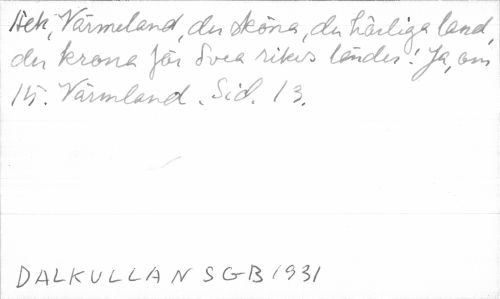 Ack, Värmeland, du sköna, du härliga land,
du krona för Svea rikes länder! Ja, om
15. Värmland. Sid. 13.
DALKULLAN SGB 1931